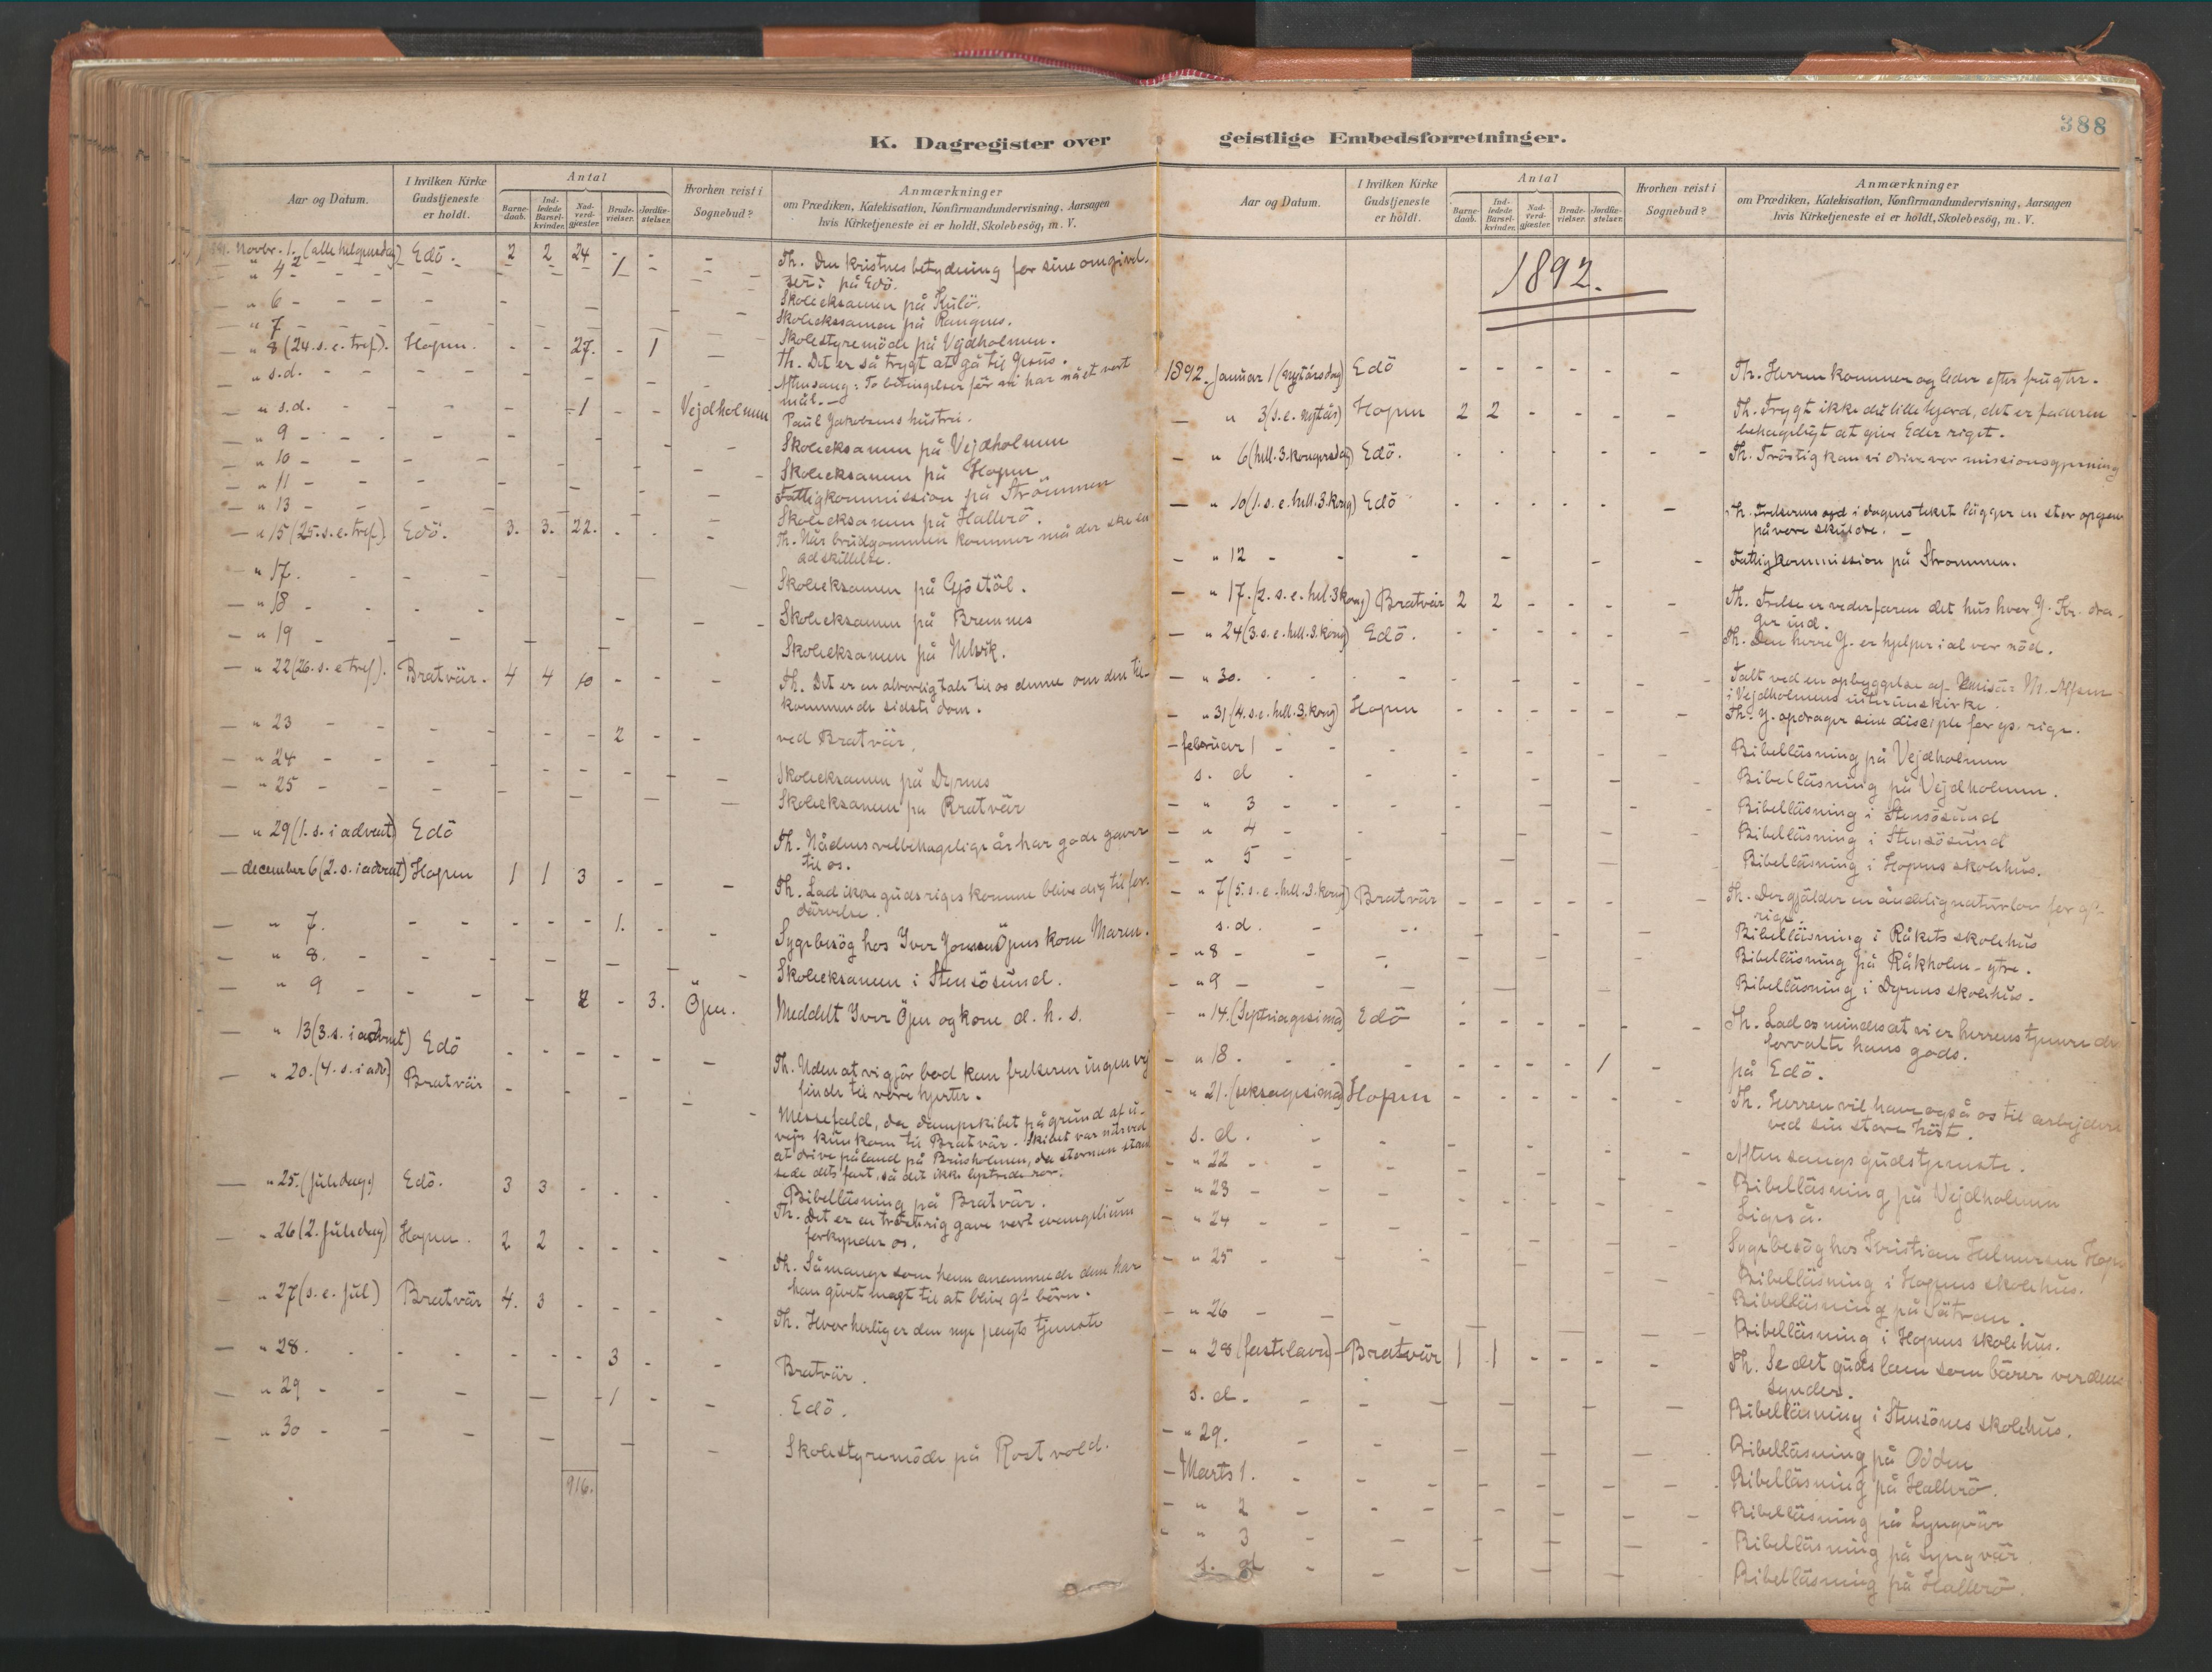 388
K. Dagregister over geistlige Embedsforretninger.
Aar og Datum.
I hvilken Kirke Gudstjeneste er holdt.
Antal
Barne-daab. Ind-ledede Barsel-kvinder. Nad-verd-gjæster. Brude-vielser. Jordfæ-stelser.
Hvorhen reist i Sognebud?
Anmærkninger
om Prædiken, Katekisation, Konfirmandundervisning, Aarsagen
hvis Kirketjeneste ei er holdt, Skolebesøg, m. V.
Novbr. 1. (allehelgensdag) Edö. 2 2 24 - - - Th. Den kristnes betydning for sine omgivel-
ser:
" 4 - - - - 1 - - på Edö.
" 6 - - - Skoleeksamen på Kulö.
" 7 - - - Skoleeksamen på Rangnes.
Skolestyremöde på Vejdholmen.
" 8 (24. s. e. tref.). Hopen. - - 27. - 1 - Th. Det er så trygt at gå til Jesus.
" s.d. - - - Aftensang: To betingelser för vi har nået vort
mål. -
" s.d. - - - 1 - - Vejdholmen Paul Jakobsens hustru.
" 9 - - - Skoleeksamen på Vejdholmen
" 10 - - - Skoleeksamen på Hopen
" 11 - - - Fattigkommission på Strömmen
" 13 - - - Skoleeksamen på Hallerö.
" 15 (25. s. e. tref.) Edö. 3. 3. 22. - - - Th. När brudgommen kommer må der ske en
adskillelse.
" 17. - - - Skoleeksamen på
" 18 - - - Skoleeksamen på Bremnes
" 19 - - - Skoleeksamen på Nelvik.
" 22 (26. s. e tref.). Bratvär. 4 4 10 - - - Th. Det er en alvorlig tale til os denne om den til-
kommende sidste dom.
" 23 - - - - 2 - - ved Bratvär.
" 24 - - - Skoleeksamen på Dyrnes
" 25 - - - Skoleeksamen på Bratvär
" 29 (1. s. i advent) Edö Th. Nådens velbehagelige år har gode gaver
til os.
december 6 (2. s. i advent) Hopen 1 1 3 - - - Th. Lad ikke guds riges komme blive dig til for-
därvelse.
" 7. - - - - 1. - - Sygebesög hos Iver Jonsen Öjens kone Maren.
" 8. - - - Skoleeksamen i Stensösund.
" 9 - - - 2 - 3. Öjen. Meddelt Iver Öjen og kone d. h. s.
" 13 (3. s. i advent) Edö - - - - - - Th. Uden at vi gjör bod kan frelseren ingen vej
finde til vore hjerter.
" 20. (4. s. i adv) Bratvär - - - - - - Messefald, da dampskibet på grund af u-
vejr kun kom til Bratvär. Skibet var när ved
at drive på land på Brusholmen, da stormen stand-
sede dets fart, så det ikke lystrede ror.
Bibelläsning på Bratvär.
" 25. (juledag) Edö. 3 3 - - - - Th. Det er en gave vort evangelium
forkynder os.
" 26 (2. juledag) Hopen. 2 2 - - - - Th. Så mange som ham anammede dem har
han givet magt til at blive gs börn.
" 27 (s. e. jul) Bratvär 4. 3 - - - - Th. Hvor herlig er den nye pagts tjeneste
" 28. - - - - 3 - - Bratvär.
" 29 - - - - 1 - - Edö.
" 30 - - - Skolestyremöde på Rostvold.
916.
Aar og Datum.
I hvilken Kirke Gudstjeneste er holdt.
Antal
Barne-daab. Ind-ledede Barsel-kvinder. Nad-verd-gjæster. Brude-vielser. Jordfæ-stelser.
Hvorhen reist i Sognebud?
Anmærkninger
om Prædiken, Katekisation, Konfirmandundervisning, Aarsagen
hvis Kirketjeneste ei er holdt, Skolebesög, m. V.
1892.
1892. Januar 1 (nytårsdag) Edö - - - - - - Th. Herren kommer og leder efter frugter.
" 3 (s. e. nytår) Hopen 2 2 - - - - Th. Frygt ikke du lille hjord, det er faderen
behageligt at give Eder riget.
" 6 (hell. 3. kongersdag) Edö. - - - - - - Th. Tröstig kan vi drive vor missionsgjerning
" 10 (1. s. e. hell. 3. kong) Edö - - - - - - Th. Frelserens ord i dagens tekst lägger en stor opgave
på vore skuldre. -
" 12 - - - Fattigkommission på Strommen.
" 17. (2. s. e. hel. 3 kong) Bratvär 2 2 - - - - Th. Frelse er vederfaren det hus hvor J. Kr. dra-
ger ind.
" 24 (3. s. e. hell. 3. kong) Edö. - - - - - - Th. Den herre J. er hjelper i al vor nöd.
" 30. - - - Talt ved en opbyggelse af
i Vejdholmens interimskirke.
" 31 (4. s. e. hell. 3. kong) Hopen - - - - - - Th. J. opdrager sine disciple for gs. rige.
februar 1 - - - Bibelläsning på Vejdholmen
s. d - - - Bibelläsning på Vejdholmen.
" 3 - - - Bibelläsning i Stensösund
" 4 - - - Bibelläsning i Stensösund
" 5 - - - Bibelläsning i Hopens skolehus.
" 7 (5. s. e. hell. 3. kong) Bratvär - - - - - - Th. Der gjälder en åndelig naturlov for gs
rige.
s.d. - - - Bibelläsning i Råkets skolehus
" 8 - - - Bibelläsning på Råkholm-ytre.
" 9 - - - Bibelläsning i Dyrnes skolehus.
" 14. (Septuagesima) Edö - - - - - - Th. Lad os mindes at vi er herrens tjenere der
forvalte hans gods.
" 18. - - - - - 1 - på Edö.
" 21. (seksagesima) Hopen - - - - - - Th. Herren vil have også os til arbejdere
ved sin store höst.
s. d. - - - Aftensangs gudstjeneste.
" 22 - - - Bibelläsning på Vejdholmen
" 23 - - - Ligeså.
" 24 - - - Sygebesög hos Kristian Helmersen Hopen
" 25 - - - Bibelläsning i Hopens skolehus.
Bibelläsning på Sätran.
" 26 - - - Bibelläsning i Hopens skolehus.
" 28 (fastelavn) Bratvär 1 1 - - - - Th. Se det guds lam som bärer verdens
synder.
s. d. - - - Bibelläsning i Stensönes skolehus.
" 29. - - - Bibelläsning på Odden
Marts 1. - - - Bibelläsning på Hallerö.
" 2 - - - Bibelläsning på Lyngvär
" 3 - - - Bibelläsning på Lyngvär
s. d - - - Bibelläsning på Hallerö.